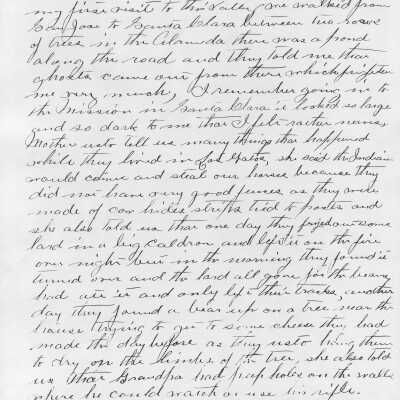 my first visit to this Valley, we walked from
San Jose to Santa Clara between two rows
of trees in the Alameda there was a pond
along the road and they told me that
ghosts came out from there which frighten
me very much, I remember going in to
the Mission in Santa Clara it looked so large
and so dark to me that I felt rather nervous,
Mother usto tell us many things that happened
while they lived in Los Gatos, she said the Indian
would come and steal our horses because they
did not have very good fences, as they were
made of cow hides stripts tied to posts and
she also told us that one day they fryed out some
lard in a big caldron and left it on the fire
over night but in the morning they found it
turned over and the lard all gone for the bears
had ate it and only left their tracks, another
day they found a bear up on a tree near the
house trying to get to some cheese they had
made the day before as they usto hang them
to dry on the limbs of the tree, she also told
us that Grandpa had peep holes on the walls
where he could watch or use his rifle.